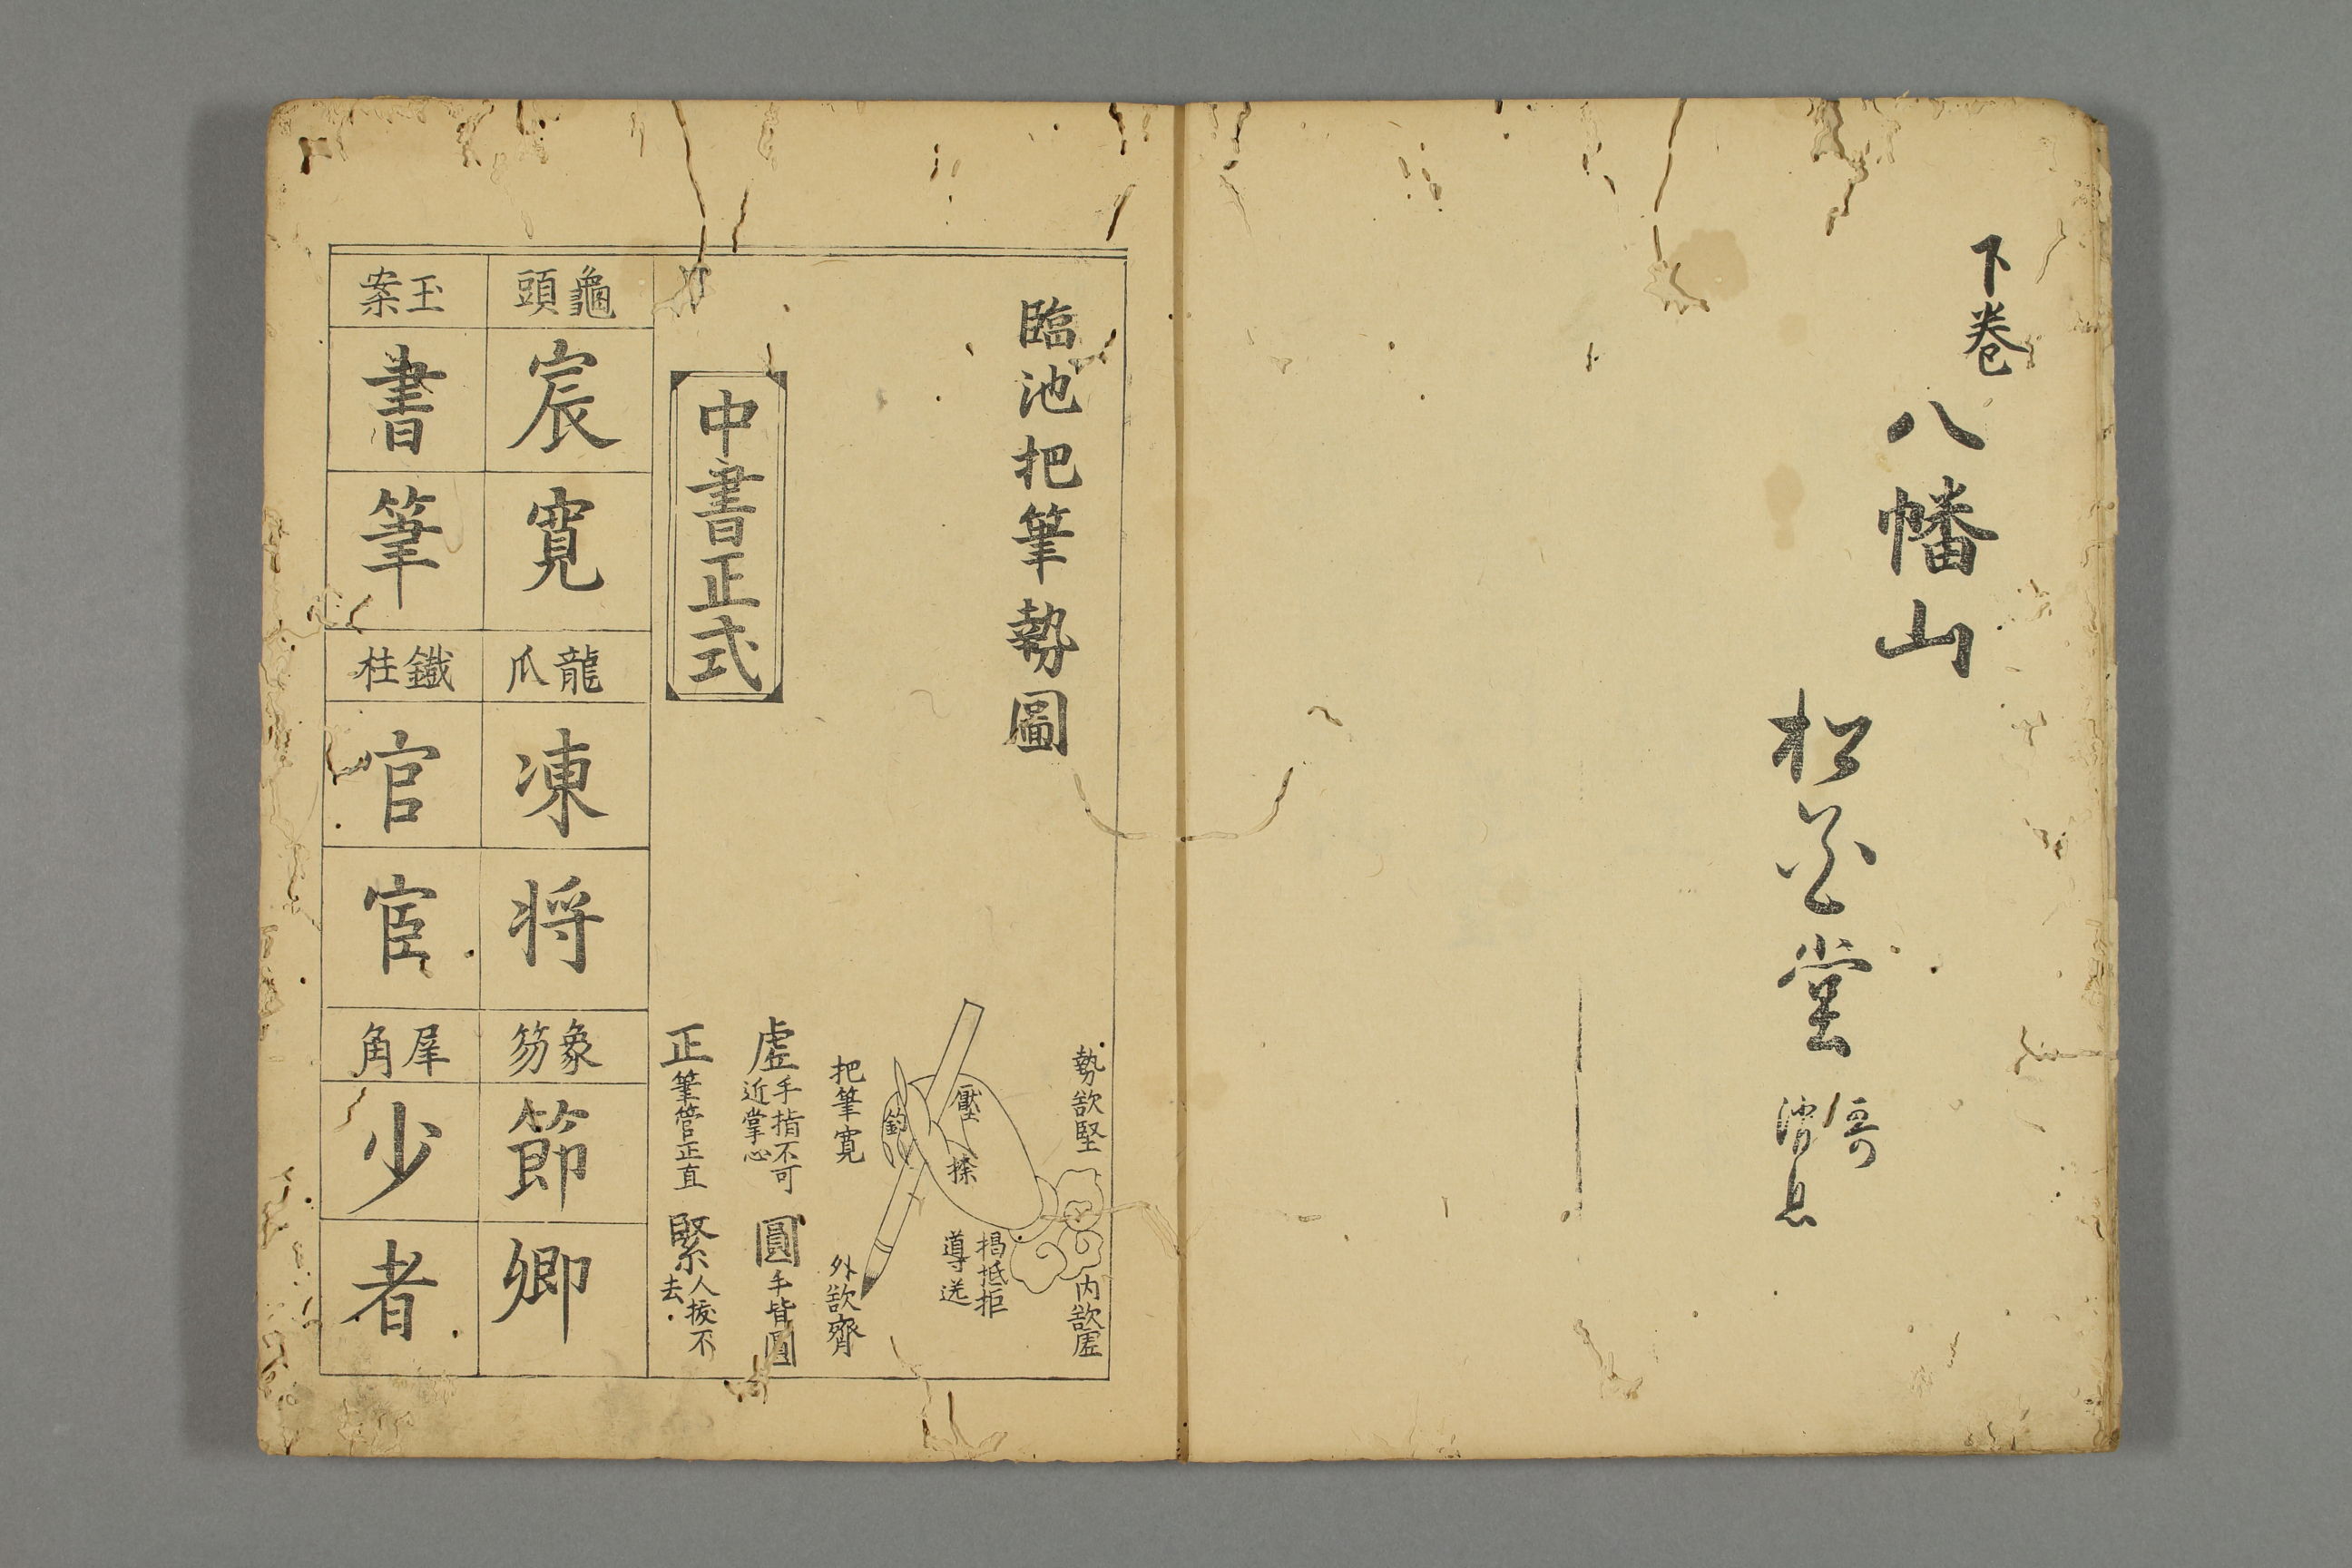 下巻
八幡山
松花堂
哥
消息
臨池把筆勢圖
勢欲堅
内欲虛
壓
捺
鈎
揭抵拒
導送
把筆寬
外欲齊
虛 手指不可
近掌心
圓 手背圓
正 筆管正直
緊 人拔不
去
中書正式
龜頭
宸
寬
龍爪
凍
将
象笏
節
卿
玉案
書
筆
鐵柱
官
宦
犀角
少
者